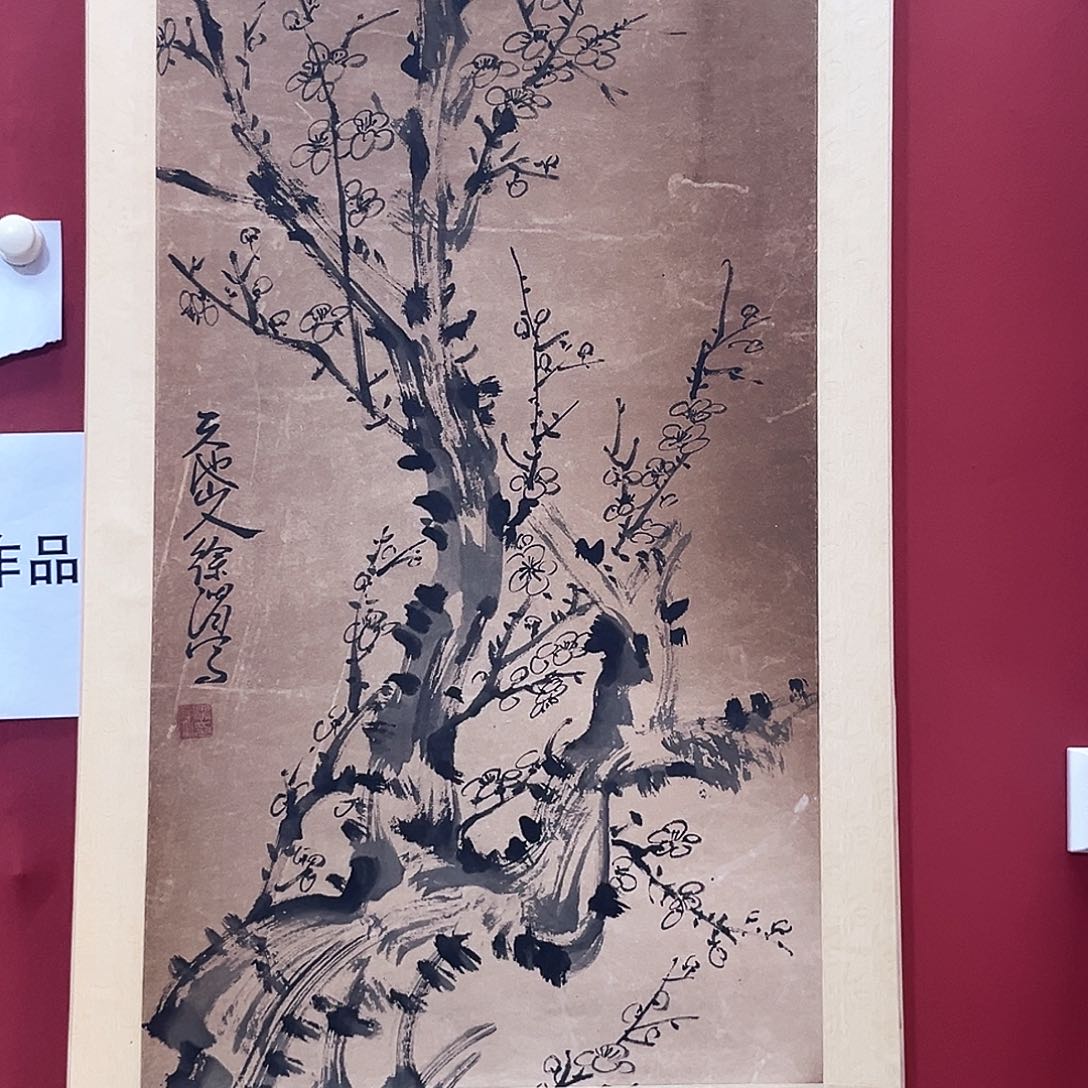 天池山人徐渭写
作品